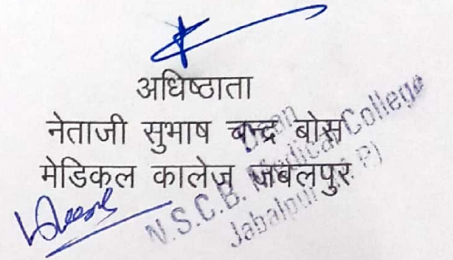 अधिष्ठाता
नेताजी सुभाष चन्द्र बोस
मेडिकल कालेज जबलपुर
Dean
N.S.C.B. Medical College
Jabalpur (M.P.)